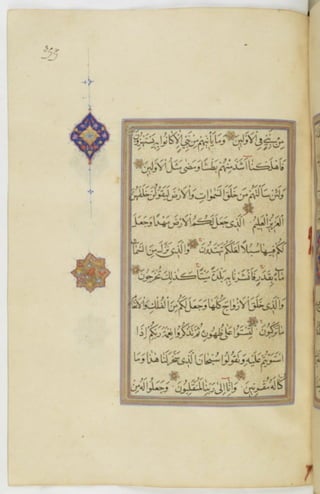 مِنْ نَبِيٍّ فِي الْأَوَّلِينَ وَمَا يَأْتِيهِمْ مِنْ نَبِيٍّ إِلَّا كَانُوا بِهِ يَسْتَهْزِؤُنَ
فَأَهْلَكْنَا أَشَدَّ مِنْهُمْ بَطْشًا وَمَضَى مَثَلُ الْأَوَّلِينَ
وَلَئِنْ سَأَلْتَهُمْ مَنْ خَلَقَ السَّمَوَاتِ وَالْأَرْضَ لَيَقُولُنَّ خَلَقَهُنَّ
الْعَزِيزُ الْعَلِيمُ الَّذِي جَعَلَ لَكُمُ الْأَرْضَ مَهْدًا وَجَعَلَ
لَكُمْ فِيهَا سُبُلًا لَعَلَّكُمْ تَهْتَدُونَ وَالَّذِي نَزَّلَ مِنَ السَّمَاءِ
مَاءً بِقَدَرٍ فَأَنْشَرْنَا بِهِ بَلْدَةً مَيْتًا كَذَلِكَ تُخْرَجُونَ
وَالَّذِي خَلَقَ الْأَزْوَاجَ كُلَّهَا وَجَعَلَ لَكُمْ مِنَ الْفُلْكِ وَالْأَنْعَامِ
مَا تَرْكَبُونَ لِتَسْتَوُوا عَلَى ظُهُورِهِ ثُمَّ تَذْكُرُوا نِعْمَةَ رَبِّكُمْ إِذَا
اسْتَوَيْتُمْ عَلَيْهِ وَتَقُولُوا سُبْحَانَ الَّذِي سَخَّرَ لَنَا هَذَا وَمَا
كُنَّا لَهُ مُقْرِنِينَ وَإِنَّا إِلَى رَبِّنَا لَمُنْقَلِبُونَ وَجَعَلُوا لَهُ مِنْ